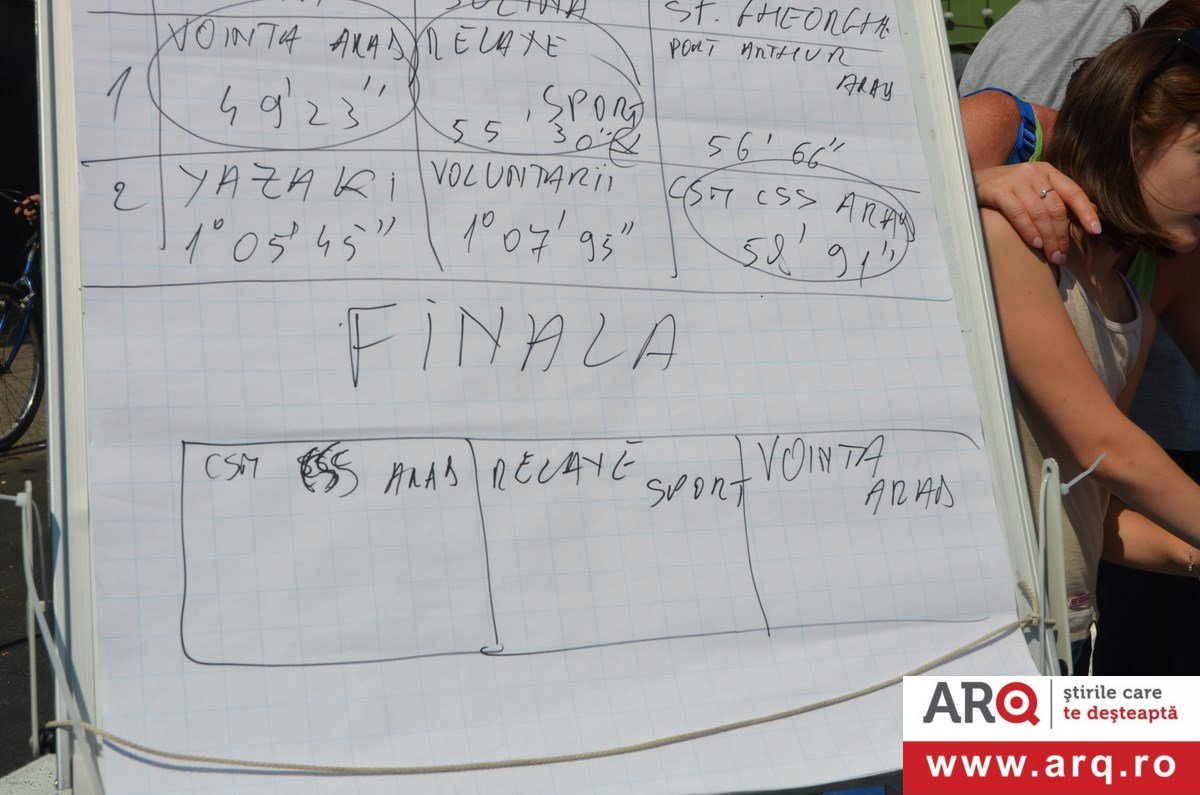 SULINA
SF. GHEORGHE
1
VOINTA ARAD
49' 23''
RELAXE
SPORT
55' 30''
PORT ARTHUR
ARAD
56' 66''
2
YAZAKI
1° 05' 45''
VOLUNTARII
1° 07' 93''
CSM CSS ARAD
58' 91''
FINALA
CSM CSS ARAD
RELAXE
SPORT
VOINTA
ARAD
ARQ
știrile care
te deșteaptă
www.arq.ro